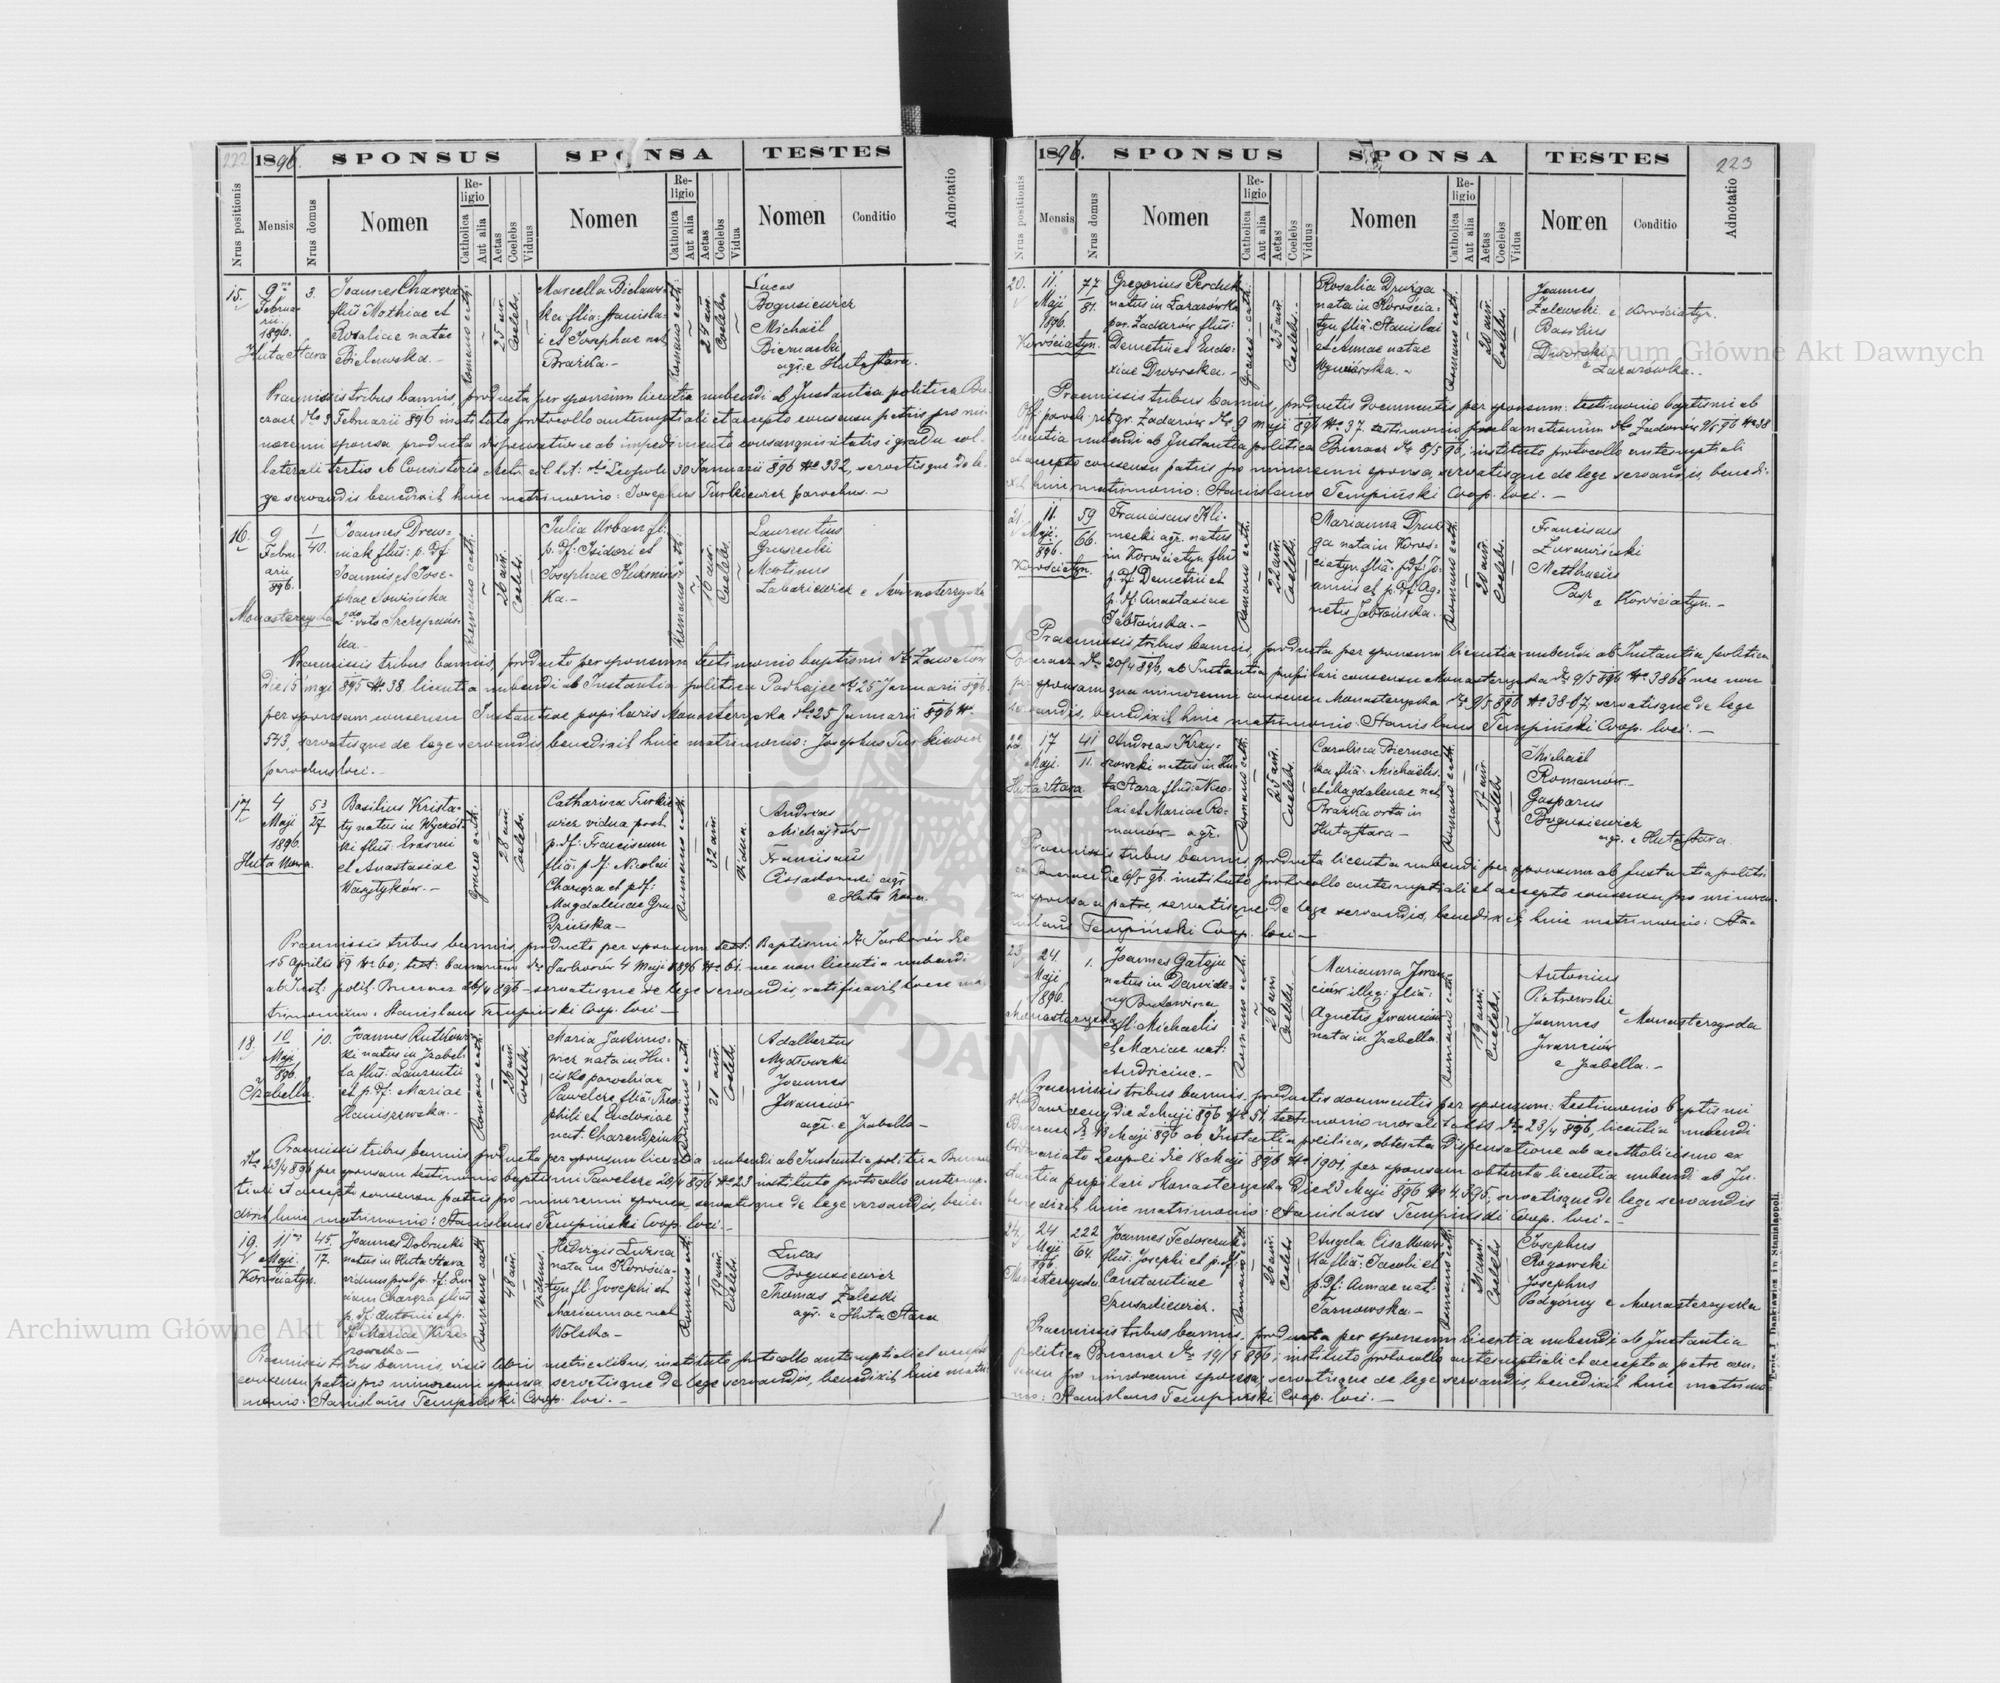 222
1896.
SPONSUS
SPONSA
TESTES
Adnotatio
Nrus positionis
Mensis
Nrus domus
Nomen
Religio
Catholica
Aut alia
Aetas
Coelebs
Viduus
Nomen
Religio
Catholica
Aut alia
Aetas
Coelebs
Vidua
Nomen
Conditio
15.
9na
Februarii
1896.
Huta Stara
3.
Joannes Charęza
fliũs Mathiae et
Rosaliae natae
Bielawska.
Romano cath.
25 ann.
Coelebs.
Marcella Bielaws-
ka flia: Stanisla-
i et Josephae nat
Braźka.
Romano cath.
24 ann.
Coelebs
Lucas
Bogusiewicz
Michaël
Biernacki
agr. e Huta Stara.
Praemissis tribus bannis, producta per sponsum licentia nubendi ab Instantia politica Bu-
czacz dto 3 Februarii 896 instituto protocollo antenuptiali et accepto consensu patris pro mi-
norenni sponsa, producta dispensatione ab impedimento consanguinitatis i gradu col-
laterali tertio et Consistorio Metr. r. l. dto Leopoli 30 Januarii 896 No 332, servatisque de le-
ge servandis benedixit huic matrimonio: Josephus Turkiewicz parochus.
16.
9
Febru
arii
896.
Monasterzyska
1/40.
Joannes Drew-
niak fliũs: p. df:
Joannis et Jose-
phae Sowińska
2do voto Szczepańs-
ka.
Romano cath.
26 ann.
Coelebs
Julia Urban fl:
p. df: Isidori et
Josephae
ka.
Romano cath.
18 ann.
Coelebs.
Laurentius
Gruszecki
Martinus
Lazariewicz e Monasterzyska
Praemissis tribus bannis, producto per sponsum testimonio baptismi dto Zawałów
die 15 maji 895 No 38. licentia nubendi ab Instantia politica Podhajce dto 25 Januarii 896
per sponsam consensu Instantiae pupilaris Monasterzyska dto 25 Januarii 896 No
543, servatisque de lege servandis, benedixit huic matrimonio: Josephus Turkiewicz
parochus loci.
17.
4
Maji
1896.
Huta Nova.
53
27
Basilius Krista-
ty natus in Wyczół-
ki fliũs: Erasmi
et Anastasiae
Wasylyków.
Graeco cath.
28 ann
Coelebs.
Catharina Turkie-
wicz vidua post
p. df: Franciscum
fliã: p. df: Nicolai
Charęza et p. df:
Magdalenae Gru
dzińska
Romano cath.
32 ann.
Vidua.
Andreas
Michajłów
Franciscus
Cisakowski agr.
e Huta Nova.
Praemissis tribus bannis, producto per sponsum test: Baptismi dto Jazłowiec die
15 Aprilis 89 No 60; test: bannorum dto 4 Maji 1896 No 61. nec non licentia nubendi
ab Inst: polit. Buczacz 896 servatisque de lege servandis, ratificavit hocce ma-
trimonium: Stanislaus Tempiński Coop. loci
18.
10
Maji
896
Izabella.
10.
Joannes Rutkows-
ki natus in Izabel-
la fliũs: Laurentii
et p. df: Mariae
Haniszewska.
Romano cath.
26 ann.
Coelebs
Maria Jakimo-
wicz nata in Hu-
cisko parochiae
Pawelcze fliã: Theo-
phili et Eudoxiae
nat. Charendziuk
Romano cath.
21 ann.
Coelebs
Adalbertus
Mydłowski
Joannes
Iwanciow
agr. e Izabella
Praemissis tribus bannis producta per sponsum licentia nubendi ab Instantia politica Buczacz
dto 23/4 896 per sponsam testimonio baptismi Pawelcze 20/4 896 No 23 instituto protocollo antenup-
tiali et accepto consensu patris pro minorenni sponsa, servatisque de lege servandis, bene-
dixit huic matrimonio: Stanislaus Tempiński Coop. loci.
19.
11mo
Maji.
Korościatyn.
45.
17.
Joannes Dobrucki
natus in Huta Stara
viduus post p. df. Lu-
ciam Charęza fliũs
p. df. Antonii et p.
df. Mariae Krze-
szowska
Romano cath.
48 ann.
Viduus.
Hedvigis Luzna
nata in Korościa-
tyn fl. Josephi et
Mariannae nat
Wolska
Romano cath.
19 ann.
Coelebs
Lucas
Bogusiewicz
Thomas Zaleski
agr. e Huta Stara
Praemissis tribus bannis, visis libris metricalibus, instituto protocollo antenuptiali et accepto
consensu patris pro minorenni sponsa servatisque de lege servandis, benedixit huic matri-
monio: Stanislaus Tempiński Coop. loci.
1896.
SPONSUS
SPONSA
TESTES
223
Adnotatio
Nrus positionis
Mensis
Nrus domus
Nomen
Religio
Catholica
Aut alia
Aetas
Coelebs
Viduus
Nomen
Religio
Catholica
Aut alia
Aetas
Coelebs
Vidua
Nomen
Conditio
20.
11.
Maji
1896.
Korościatyn.
77
81.
Gregorius Perduk
natus in Łazarówka
par. Zadarów fliũs:
Demetrii et Eudo-
xiae Dworska.
Graeco cath.
25 ann
Coelebs.
Rosalia Druzga
nata in Korościa-
tyn fliã. Stanislai
et Annae natae
Romano cath.
20 ann.
Coelebs.
Joannes
Zalewski e Korościatyn.
Basilius
Dworski
e Łazarówka.
Praemissis tribus bannis, productis documentis per sponsum: testimonio baptismi ab
Off. paroch. rit. gr. Zadarów dto 9 maji 896 No 37. testimonio proclamationum dto Zadarów 9/5 96 No 38
licentia nubendi ab Instantia politica Buczacz dto 8/5 96, instituto protocollo antenuptiali
et accepto consensu patris pro minorenni sponsa, servatisque de lege servandis, benedi-
xit huic matrimonio: Stanislaus Tempiński Coop. loci.
21.
11.
Maji
896.
Korościatyn.
59
66.
Franciscus Kli-
mecki agr. natus
in Korościatyn fliũs
p. df Demetrii et
p. df. Anastasiae
Jabłońska.
Romano cath.
22 ann.
Coelebs.
Marianna Druz-
ga nata in Koroś-
ciatyn fliã. p. df. Jo-
annis et p. df. Ag-
netis Jabłońska.
Romano cath.
20 ann.
Coelebs.
Franciscus
Zurawiński
Matthaeus
e Korościatyn.
Praemissis tribus bannis, producta per sponsum licentia nubendi ab Instantia politica
Buczacz dto 20/4 896, ab Instantia pupilari consensu Monasterzyska dto 9/5 896 No 3866 nec non
per sponsam qua minorenni consensu Monasterzyska dto 9/5 896 No 3867, servatisque de lege
servandis, benedixit huic matrimonio. Stanislaus Tempiński Coop. loci.
22.
17
Maji.
Huta Stara.
41
11.
Andreas Krzy-
szowski natus in Hu-
ta Stara fliũs Nico-
lai et Mariae Ro-
manów agr.
Romano cath.
25 ann.
Coelebs.
Carolina Biernac-
ka fliã. Michaelis
et Magdalenae nat
Braźka orta in
Huta Stara
Romano cath.
17 ann.
Coelebs
Michaël
Romanów.
Gasparus
Bogusiewicz
agr. e Huta Stara.
Praemissis tribus bannis, producta licentia nubendi per sponsum ab Instantia politi-
ca Buczacz die 6/5 96. instituto protocollo antenuptiali et accepto consensu pro minoren-
ni sponsa a patre servatisque de lege servandis, benedixit huic matrimonio: Sta-
nislaus Tempiński Coop. loci
23.
24.
Maji
896.
Monasterzyska
1.
Joannes Gataju
natus in Davide-
ny Bukowina
fl. Michaelis
et Mariae nat:
Andriciuc.
Romano cath.
26 ann
Coelebs.
Marianna Iwan-
ciów illeg: fliã:
Agnetis Iwanciów
nata in Izabella.
Romano cath.
19 ann.
Coelebs.
Antonius
Piotrowski
e Monasterzyska
Joannes
Iwanciów
e Izabella.
Praemissis tribus bannis, productis documentis per sponsum: testimonio baptismi
dto Davideny die 2 Maji 896 No 51, testimonio morali dto 23/4 896, licentia nubendi
Buczacz dto 18 Maji 896 ab Instantia politica, obtenta dispensatione ab acatholicismo ex
Ordinariato Leopoli die 18 Maji 896 No 1901, per sponsam obtenta licentia nubendi ab In-
stantia pupilari Monasterzyska die 23 Maji 896 No 4395, servatisque de lege servandis
benedixit huic matrimonio: Stanislaus Tempiński Coop. loci.
24.
24
Maji
896.
Monasterzyska
222
64.
Joannes Fedorczuk
fliũs. Josephi et p. df:
Constantiae
Romano cath
26 ann.
Coelebs
Angela Cisakows-
ka fliã: Jacobi et
p. df: Annae nat:
Tarnowska
Romano cath.
21 ann.
Coelebs
Josephus
Rogowski
Josephus
Podgórny e Monasterzyska
Praemissis tribus bannis, producta per sponsum licentia nubendi ab Instantia
politica Buczacz dto 19/5 896, instituto protocollo antenuptiali et accepto a patre con-
sensu pro minorenni sponsa, servatisque de lege servandis, benedixit huic matrimo-
nio: Stanislaus Tempiński Coop. loci.
Typis J. Dankiewicz in Stanislaopoli.
Archiwum Główne Akt Dawnych
Archiwum Główne Akt Dawnych